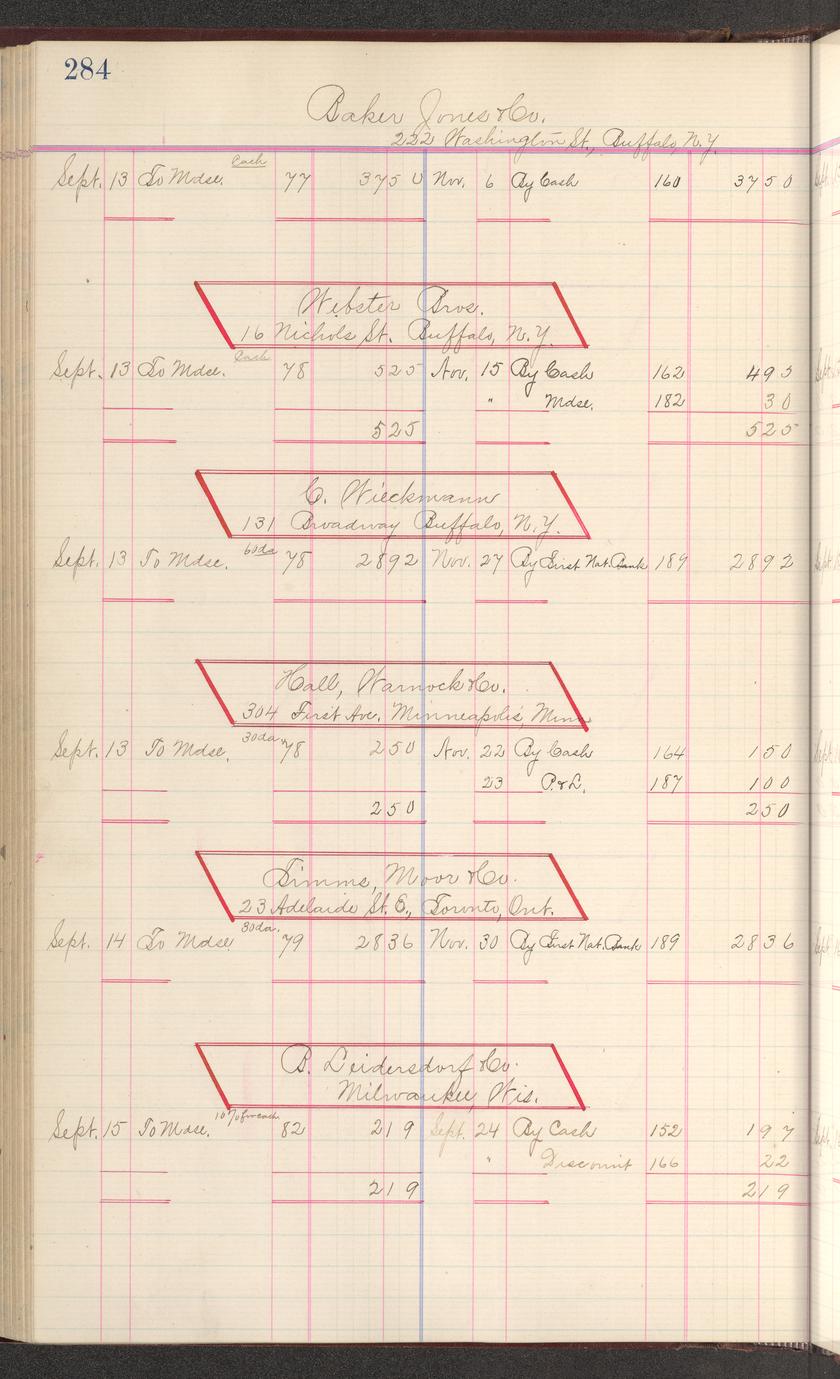 284
Baker Jones & Co.
222 Washington St., Buffalo, N.Y.
Cash
Sept. 13 To Mdse. 77 3750 Nov. 6 By Cash 160 3750
Webster Bros.
16 Nichols St. Buffalo, N.Y.
Cash
Sept. 13 To Mdse. 78 525 Nov. 15 By Cash 162 495
" Mdse. 182 30
525 525
C. Wieckmann
131 Broadway Buffalo, N.Y.
60da
Sept. 13 To Mdse. 78 2892 Nov. 27 By First Nat. Bank 189 2892
Hall, Warnock & Co.
304 First Ave. Minneapolis, Minn
30da
Sept. 13 To Mdse. 78 250 Nov. 22 By Cash 164 150
23 P. & L. 187 100
250 250
Timms, Moor & Co.
23 Adelaide St. E., Toronto, Ont.
30da.
Sept. 14 To Mdse 79 2836 Nov. 30 By First Nat. Bank 189 2836
B. Leidersdorf & Co.
Milwaukee, Wis.
10% for cash
Sept. 15 To Mdse. 82 219 Sept. 24 By Cash 152 197
" Discount 166 22
219 219